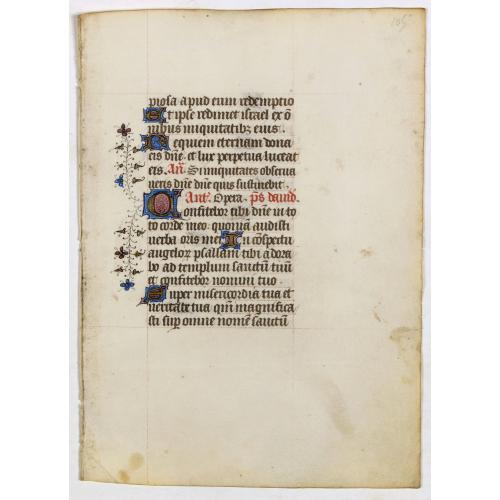 105
piosa apud eum redemptio
Et ipse redimet israel ex õ
nibus iniquitatibꝫ eius.
Requiem eternam dona
eis dñe et lux perpetua luceat
eis. Añ. Si iniquitates observa
veris dñe dñe quis sustinebit
Ant. Opera. p̄s david.
Confitebor tibi dñe in to
to corde meo quoniā audisti
verba oris mei In cōspectu
angelorꝫ psallam tibi adora
bo ad templum sanctū tuū
et confitebor nomini tuo.
Super misericordia tua et
veritate tua qm̄ magnifica
sti sup omne nomē sanctū